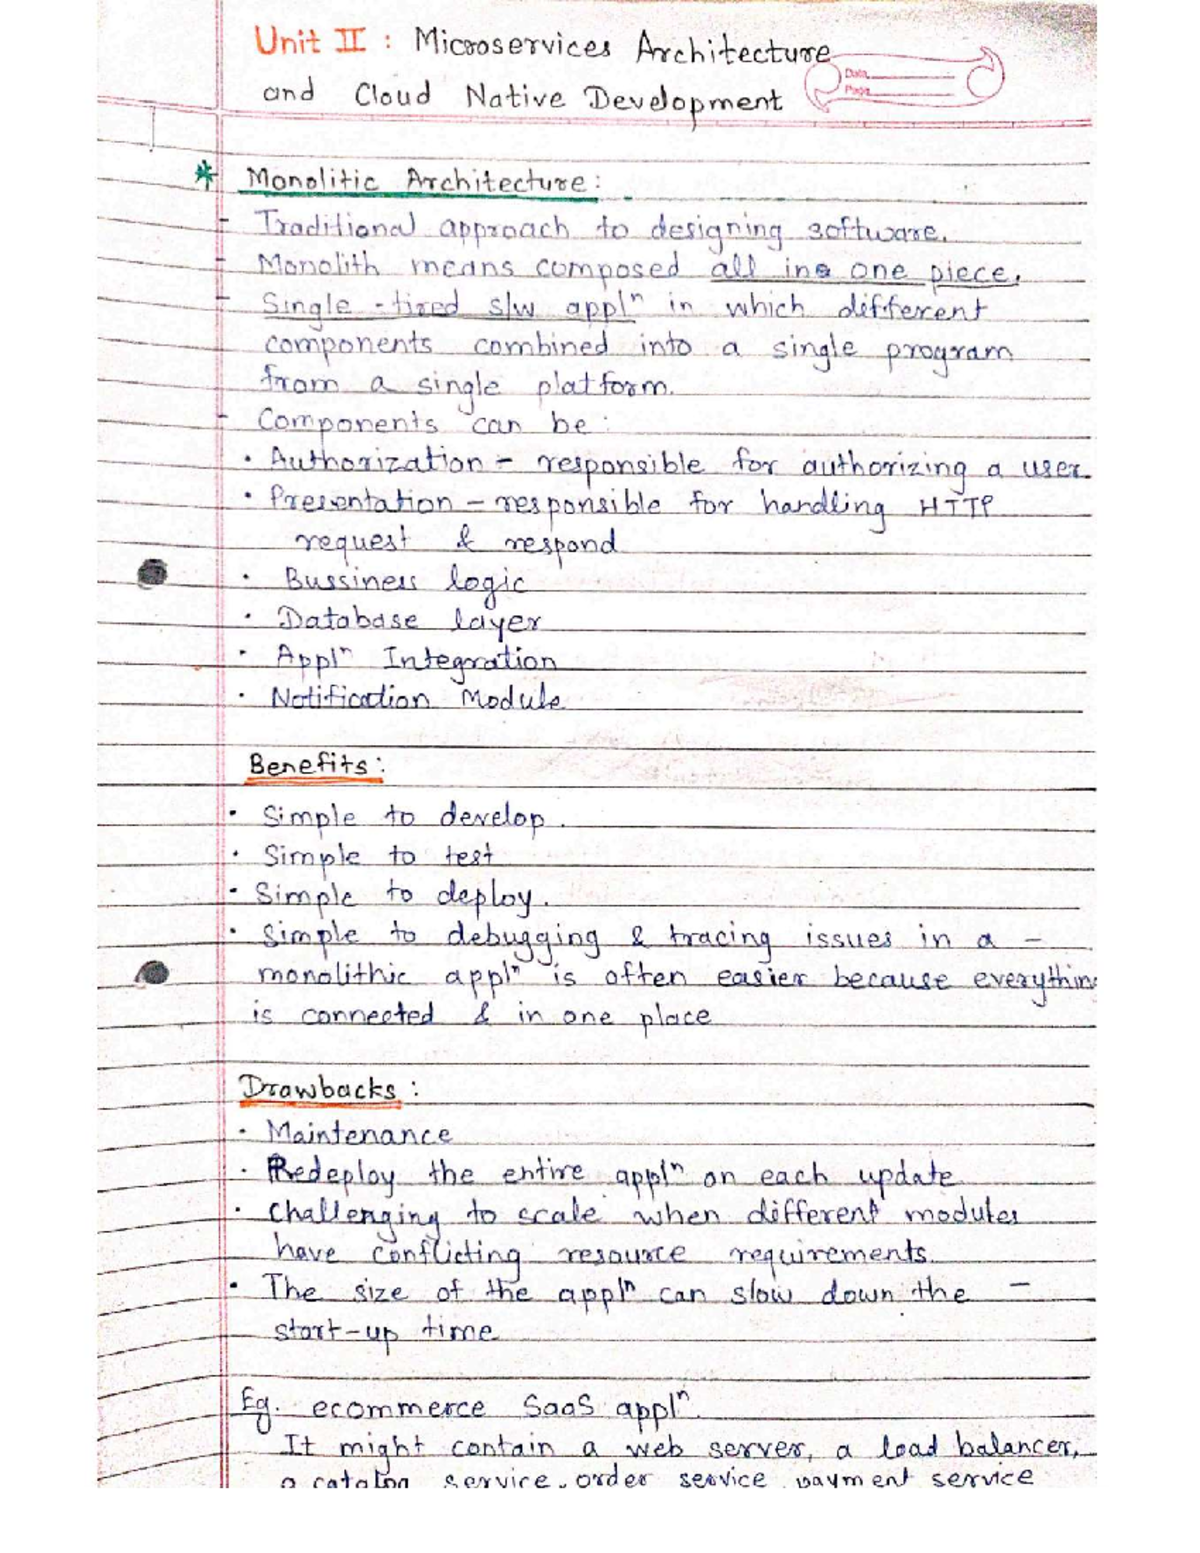 Unit II : Microservices Architecture
and Cloud Native Development
Date
Page
* Monolitic Architecture :
- Traditional approach to designing software.
- Monolith means composed all in one piece.
- Single - tired s/w applⁿ in which different
components combined into a single program
from a single platform.
- Components can be :
• Authorization - responsible for authorizing a user
• Presentation - responsible for handling HTTP
request & respond
• Bussiness logic
• Database layer
• Applⁿ Integration
• Notification Module
Benefits :
• Simple to develop.
• Simple to test
• Simple to deploy.
• Simple to debugging & tracing issues in a -
monolithic applⁿ is often easier because everything
is connected & in one place
Drawbacks :
• Maintenance
• Redeploy the entire applⁿ on each update
• Challenging to scale when different modules
have conflicting resource requirements.
• The size of the applⁿ can slow down the -
start-up time
Eg. ecommerce SaaS applⁿ.
It might contain a web server, a load balancer,
a catalog service, order service payment service